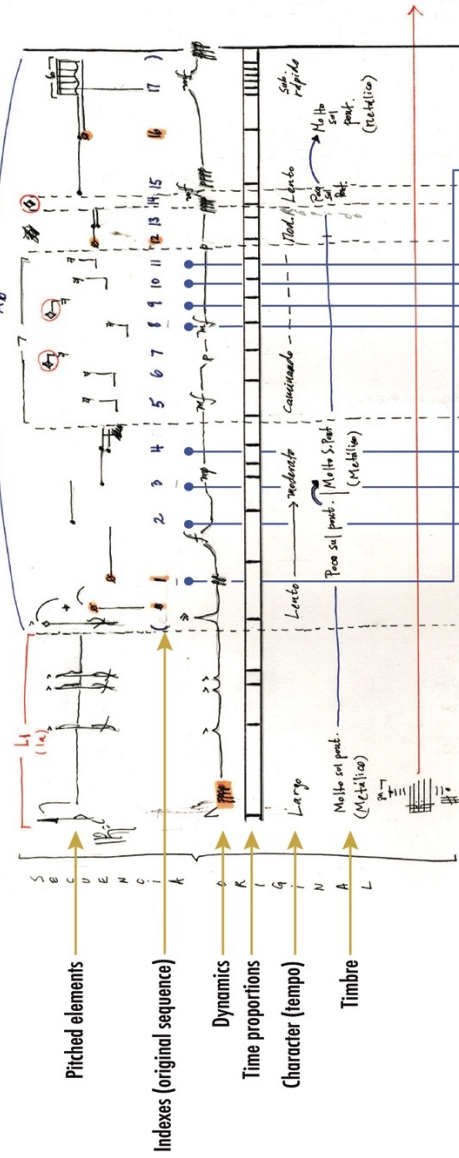 Pitched elements
Indexes (original sequence)
Dynamics
Time proportions
Character (tempo)
Timbre
SECUENCIA ORIGINAL
(1a)
7
6
( 0 1 2 3 4 5 6 7 8 9 10 11 12 13 14 15 16 17 )
f mp mf p mf p p mf mf
Largo Lento moderato Caminando Mod. Lento Sub. rápido
Molto sul pont. Poco sul pont. Molto S. Pont Poco sul Pont. Molto sul pont.
(Metálico) (Metálico) (Metálico)